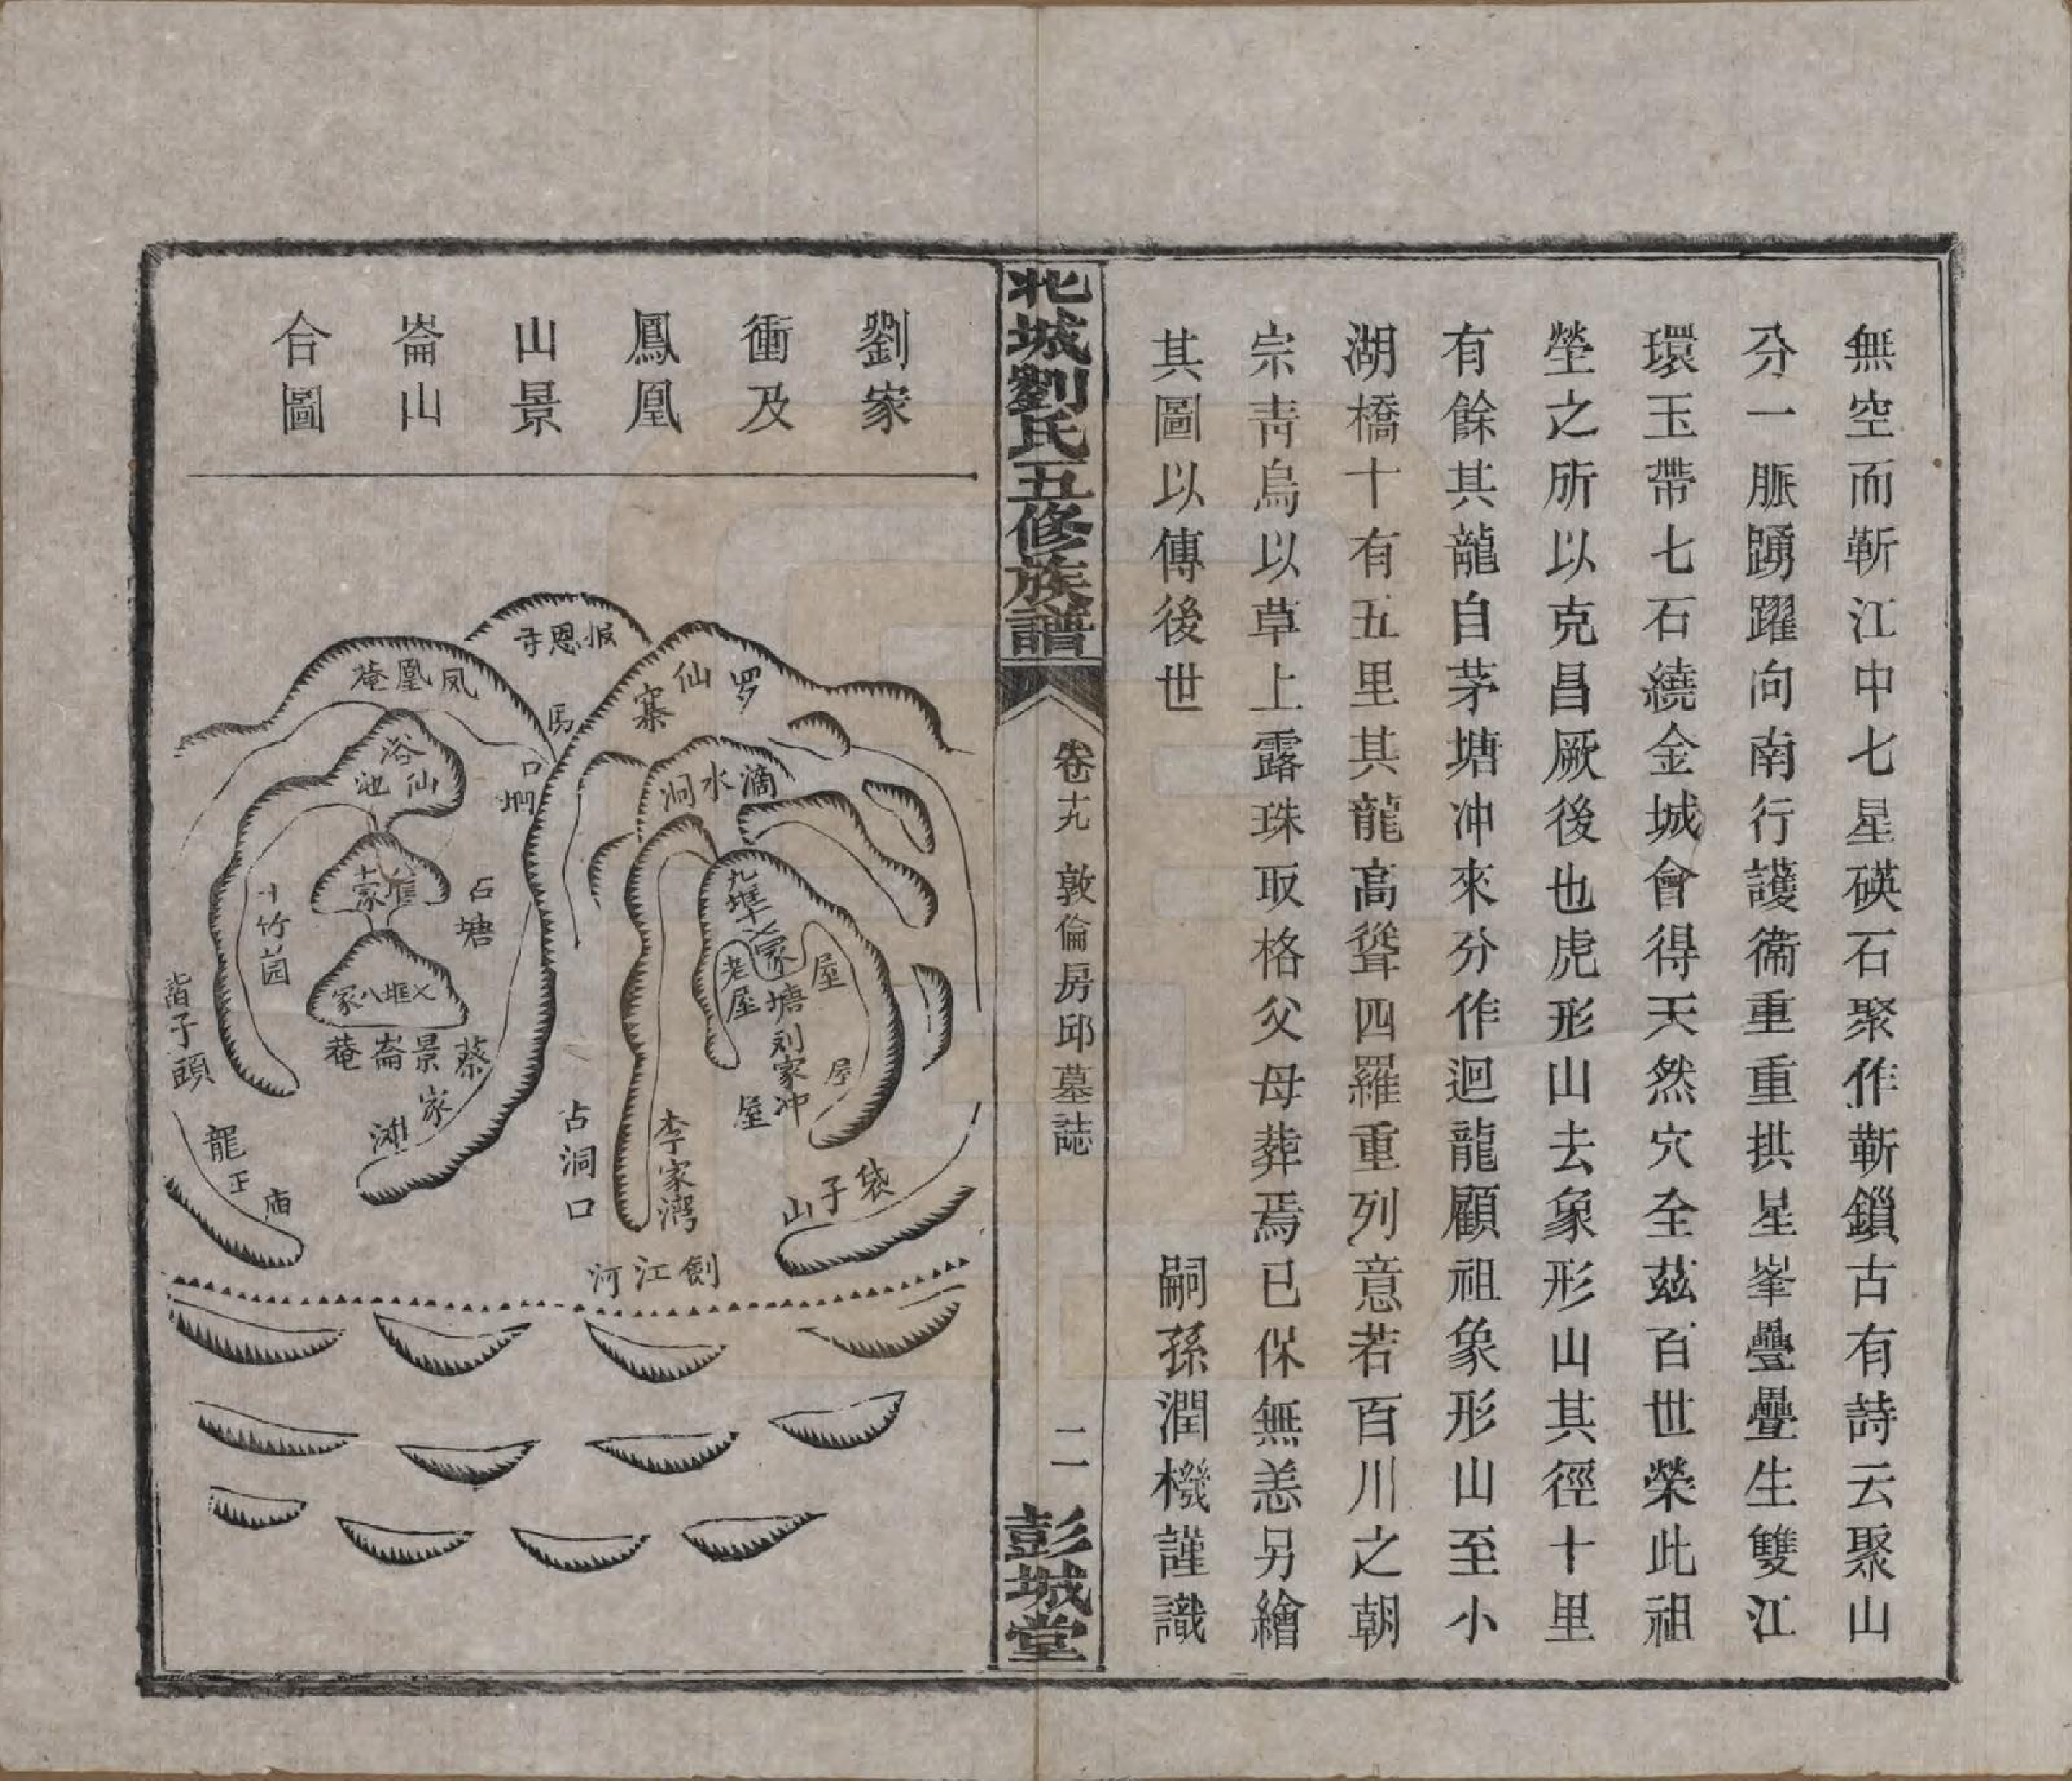 無空而靳江中七星磺石聚作靳鎖古有詩云聚山
分一脈踴躍向南行護衞重重拱星峯疊疊生雙江
環玉帶七石繞金城會得天然穴全茲百世榮此祖
塋之所以克昌厥後也虎形山去象形山其徑十里
有餘其龍自茅塘冲來分作迴龍顧祖象形山至小
湖橋十有五里其龍高聳四羅重列意若百川之朝
宗靑烏以草上露珠取格父母葬焉已保無恙另繪
其圖以傳後世　嗣孫潤機謹識
北城劉氏五修族譜
卷十九　敦倫房邱墓誌　二
彭城堂
劉家
衝及
鳳凰
山景
崙山
合圖
报恩寺
罗仙寨
凤凰菴
馬口坳
浴仙池
滴水洞
石塘
竹园
老屋
屋
塘
刘家冲
屋
屋
景崙菴
蔡家滩
子頭
龍王庙
占洞口
李家湾
袋子山
江河